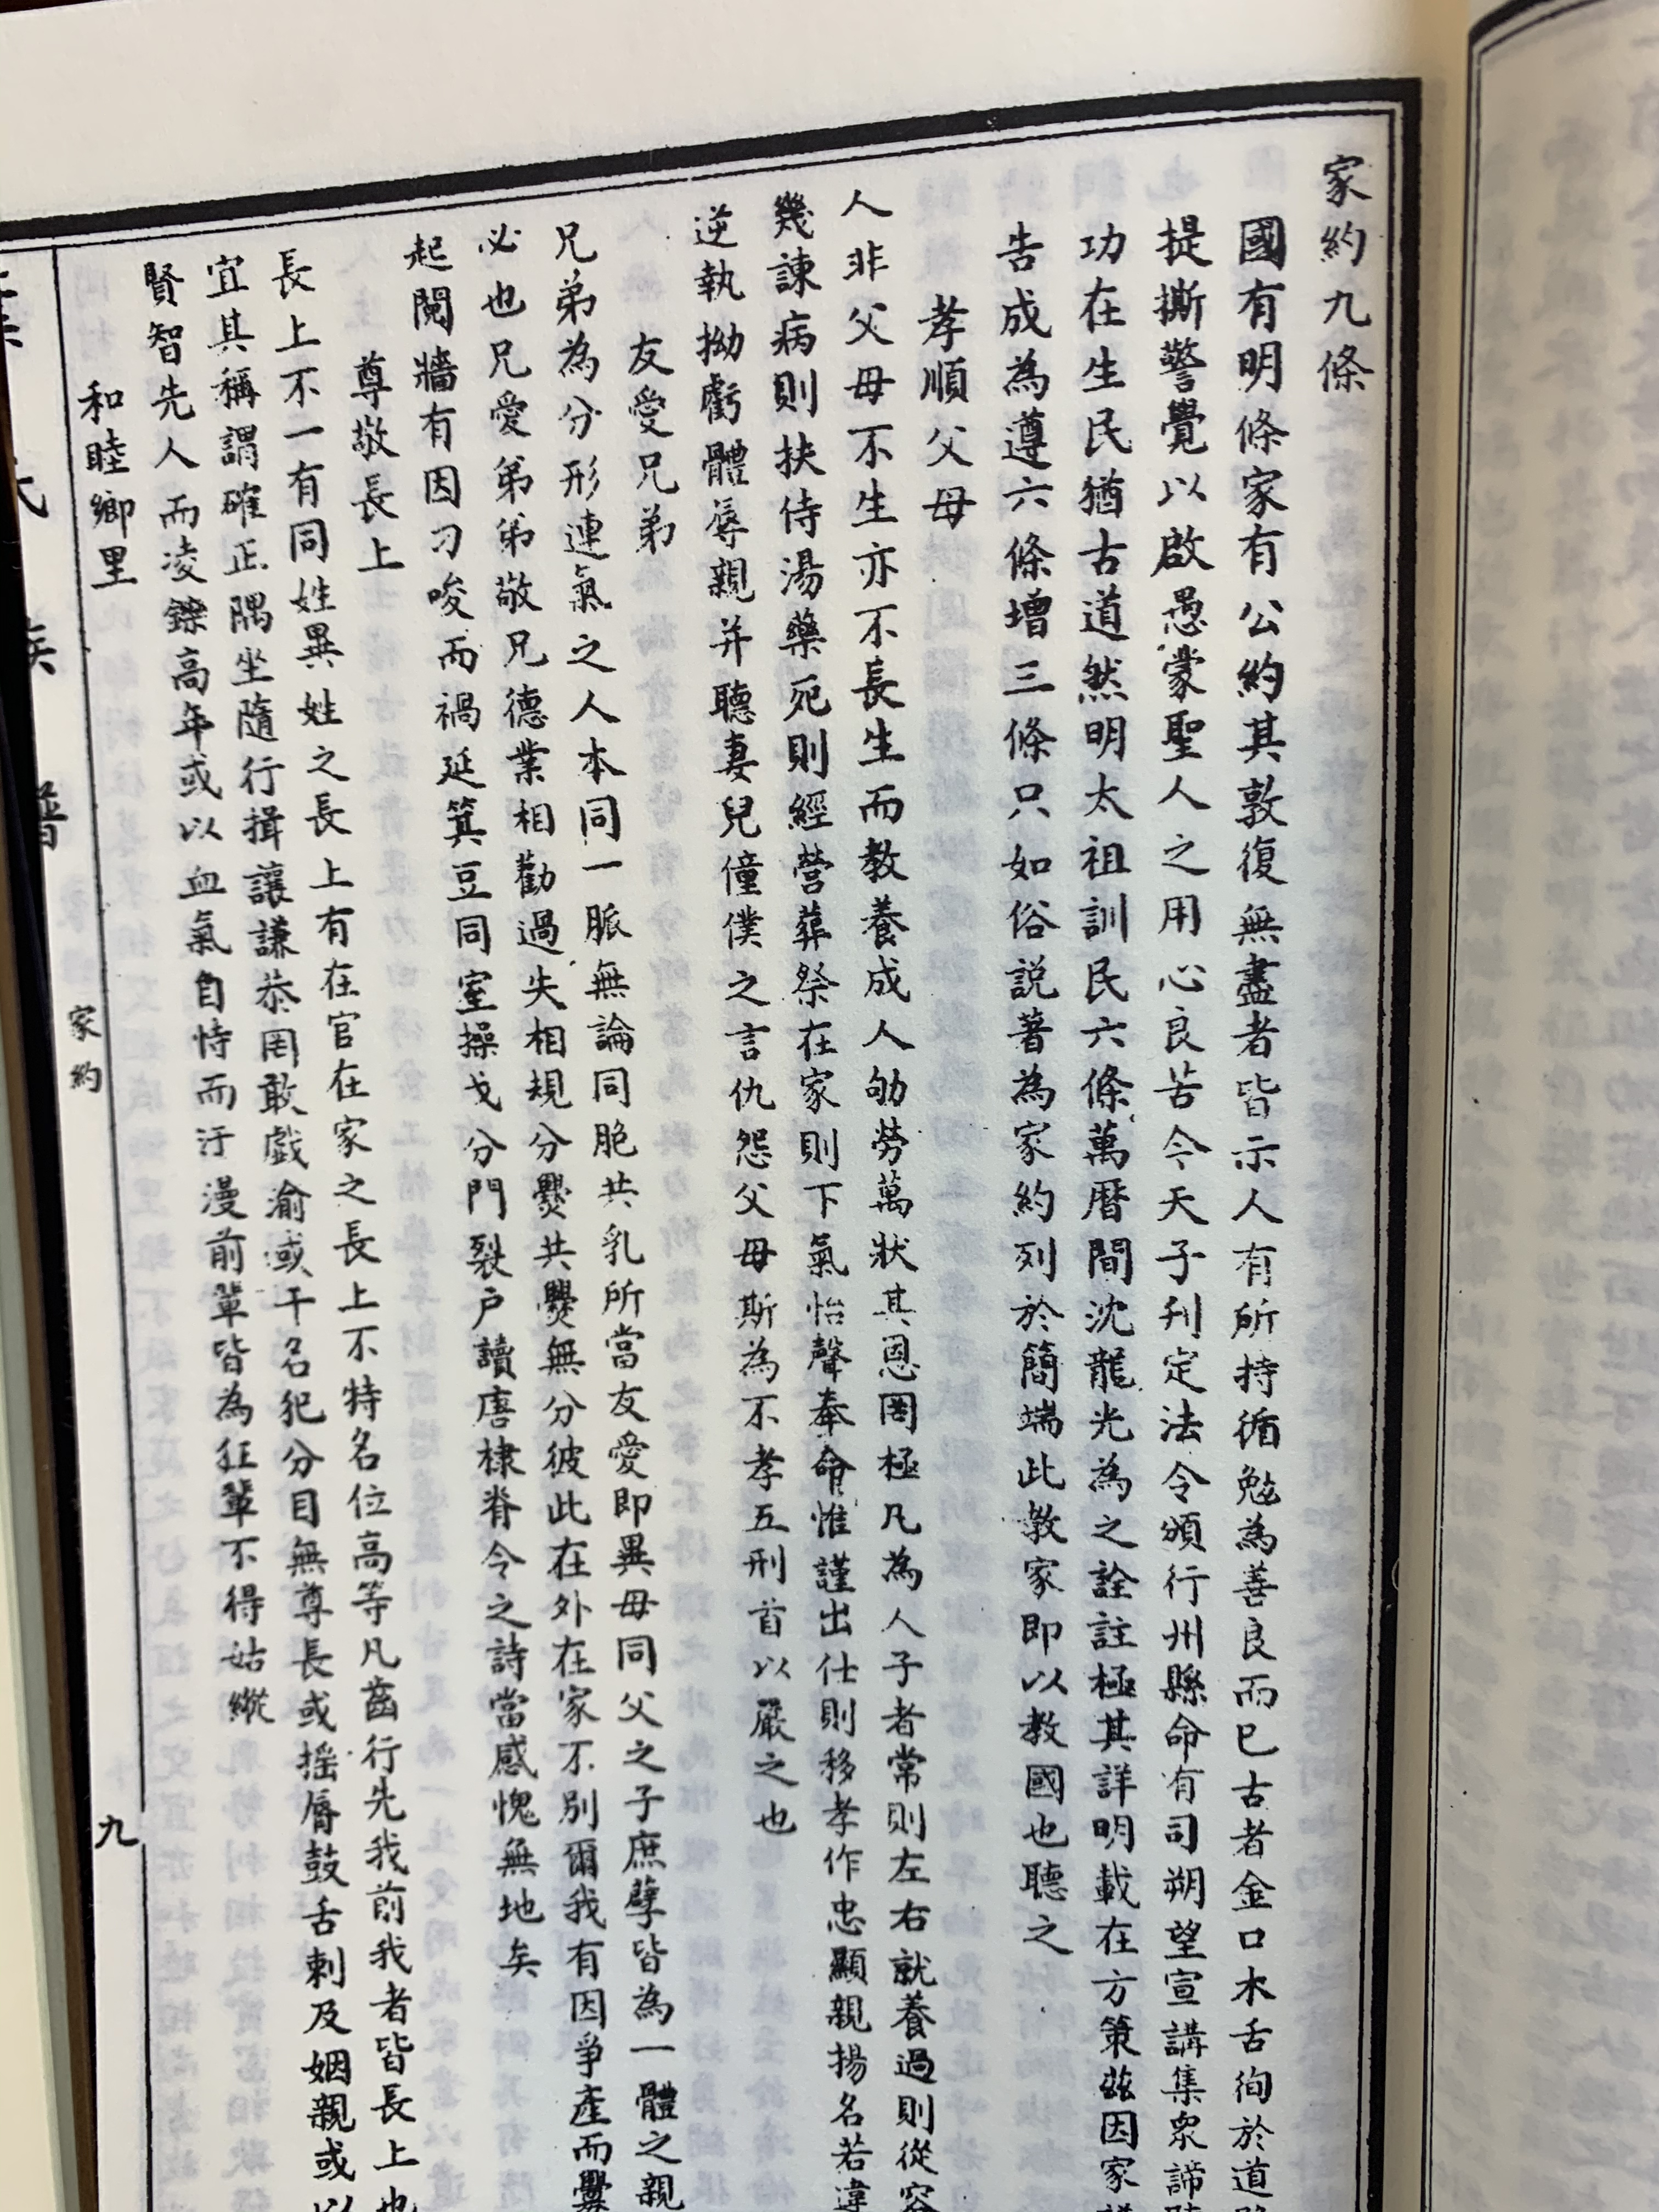 家約九條
國有明條家有公約其敦復無盡者皆示人有所持循勉為善良而已古者金口木舌徇於道
提撕警覺以啟愚蒙聖人之用心良苦今天子刊定法令頒行州縣命有司朔望宣講集衆諦
功在生民猶古道然明太祖訓民六條萬曆間沈龍光為之詮註極其詳明載在方策茲因家
告成為遵六條增三條只如俗説著為家約列於簡端此教家即以教國也聽之
孝順父母
人非父母不生亦不長生而教養成人劬勞萬狀其恩罔極凡為人子者常則左右就養過則從容
幾諫病則扶侍湯藥死則經營葬祭在家則下氣怡聲奉命惟謹出仕則移孝作忠顯親揚名若違
逆執拗虧體辱親并聽妻兒僮僕之言仇怨父母斯為不孝五刑首以嚴之也
友愛兄弟
兄弟為分形連氣之人本同一脈無論同胞共乳所當友愛即異母同父之子庶孽皆為一體之親
必也兄愛弟弟敬兄德業相勸過失相規分爨共爨無分彼此在外在家不別爾我有因爭產而釁
起鬩牆有因刁唆而禍延箕豆同室操戈分門裂户讀唐棣脊令之詩當感愧無地矣
尊敬長上
長上不一有同姓異姓之長上有在官在家之長上不特名位高等凡齒行先我前我者皆長上也
宜其稱謂確正隅坐隨行揖讓謙恭罔敢戲渝或干名犯分目無尊長或摇脣鼓舌刺及姻親或以
賢智先人而凌鑠高年或以血氣自恃而汙漫前輩皆為狂輩不得姑縱
和睦鄉里
族
譜
家約
九